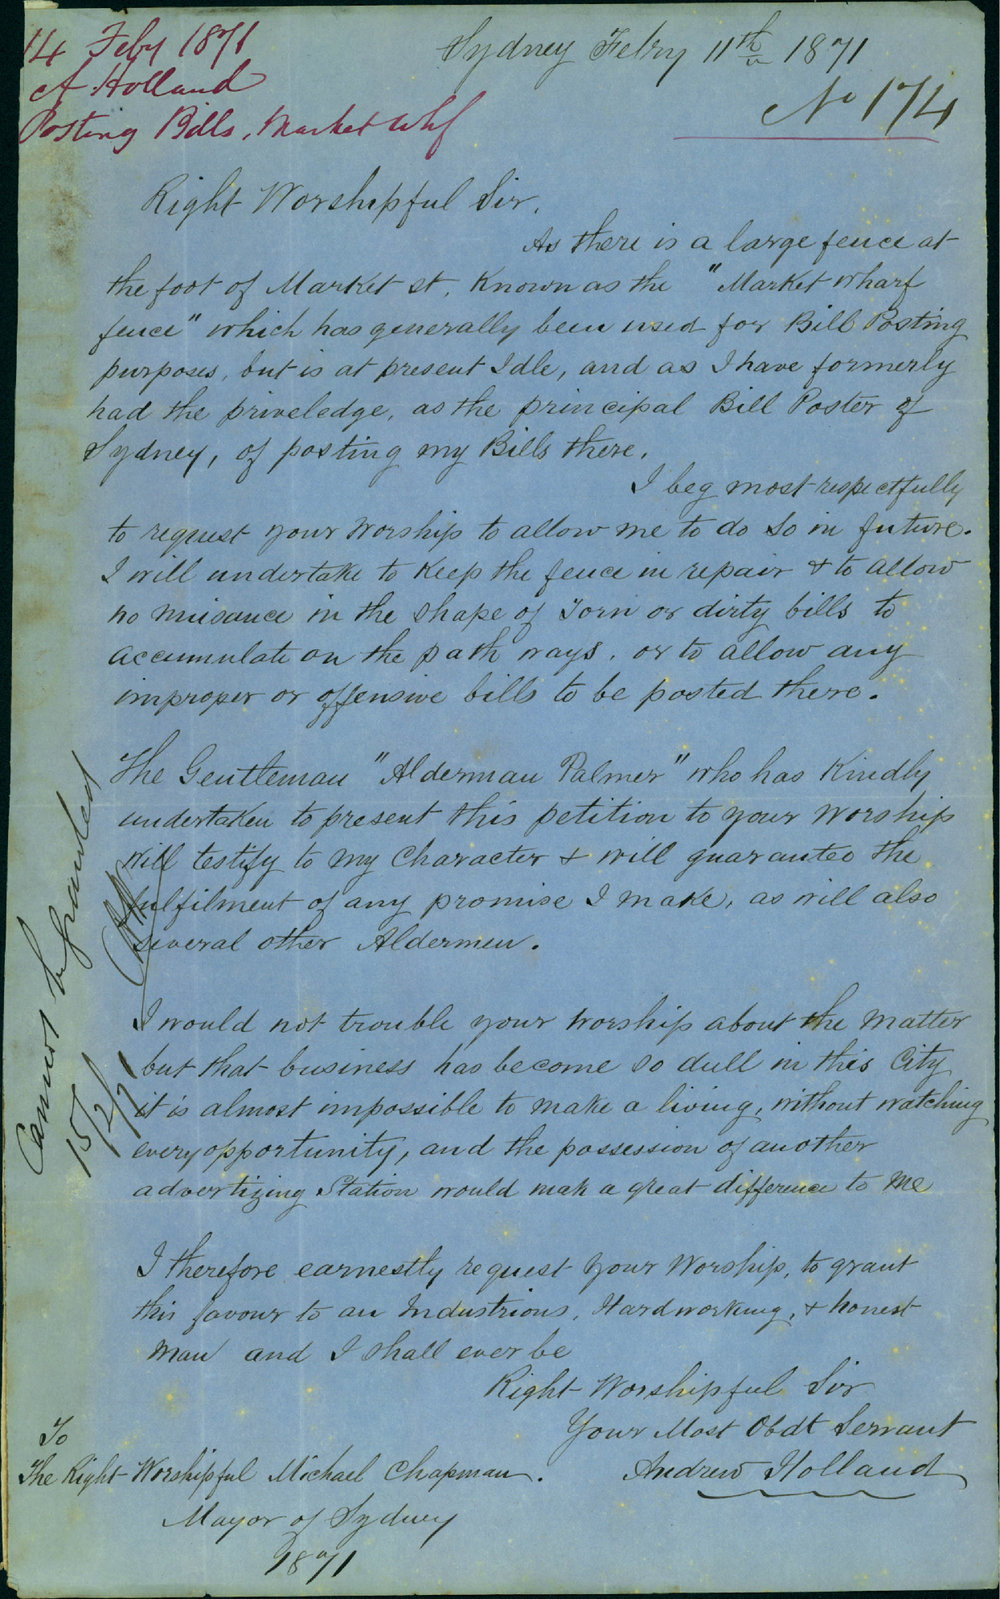 14 Feby 1871
A Holland
Posting Bills, Market Whf
Sydney Febry 11th 1871
No 174
Right Worshipful Sir,
As there is a large fence at
the foot of Market st. Known as the "Market wharf
fence" which has generally been used for Bill Posting
purposes, but is at present Idle, and as I have formerly
had the priveledge, as the principal Bill Poster of
Sydney, of posting my Bills there.
I beg most respectfully
to request your Worship to allow me to do so in future.
I will undertake to Keep the fence in repair & to allow
no nuisance in the shape of Torn or dirty bills to
accumulate on the path ways. or to allow any
improper or offensive bills to be posted there.
The Gentleman "Alderman Palmer" who has Kindly
undertaken to present this petition to your Worship
Will testify to my Character & will guarantee the
fulfilment of any promise I make, as will also
several other Aldermen.
I would not trouble your Worship about the Matter
but that business has become so dull in this City
it is almost impossible to make a living, without watching
every opportunity, and the possession of another
advertizing Station would mak a great difference to Me
I therefore earnestly request your Worship, to grant
this favour to an Industrious, Hardworking, & honest
Man and I shall ever be
Right Worshipful Sir
Your Most Obdt Servant
Andrew Holland
To
The Right Worshipful Michael Chapman.
Mayor of Sydney
1871
Cannot be granted
15/2/71